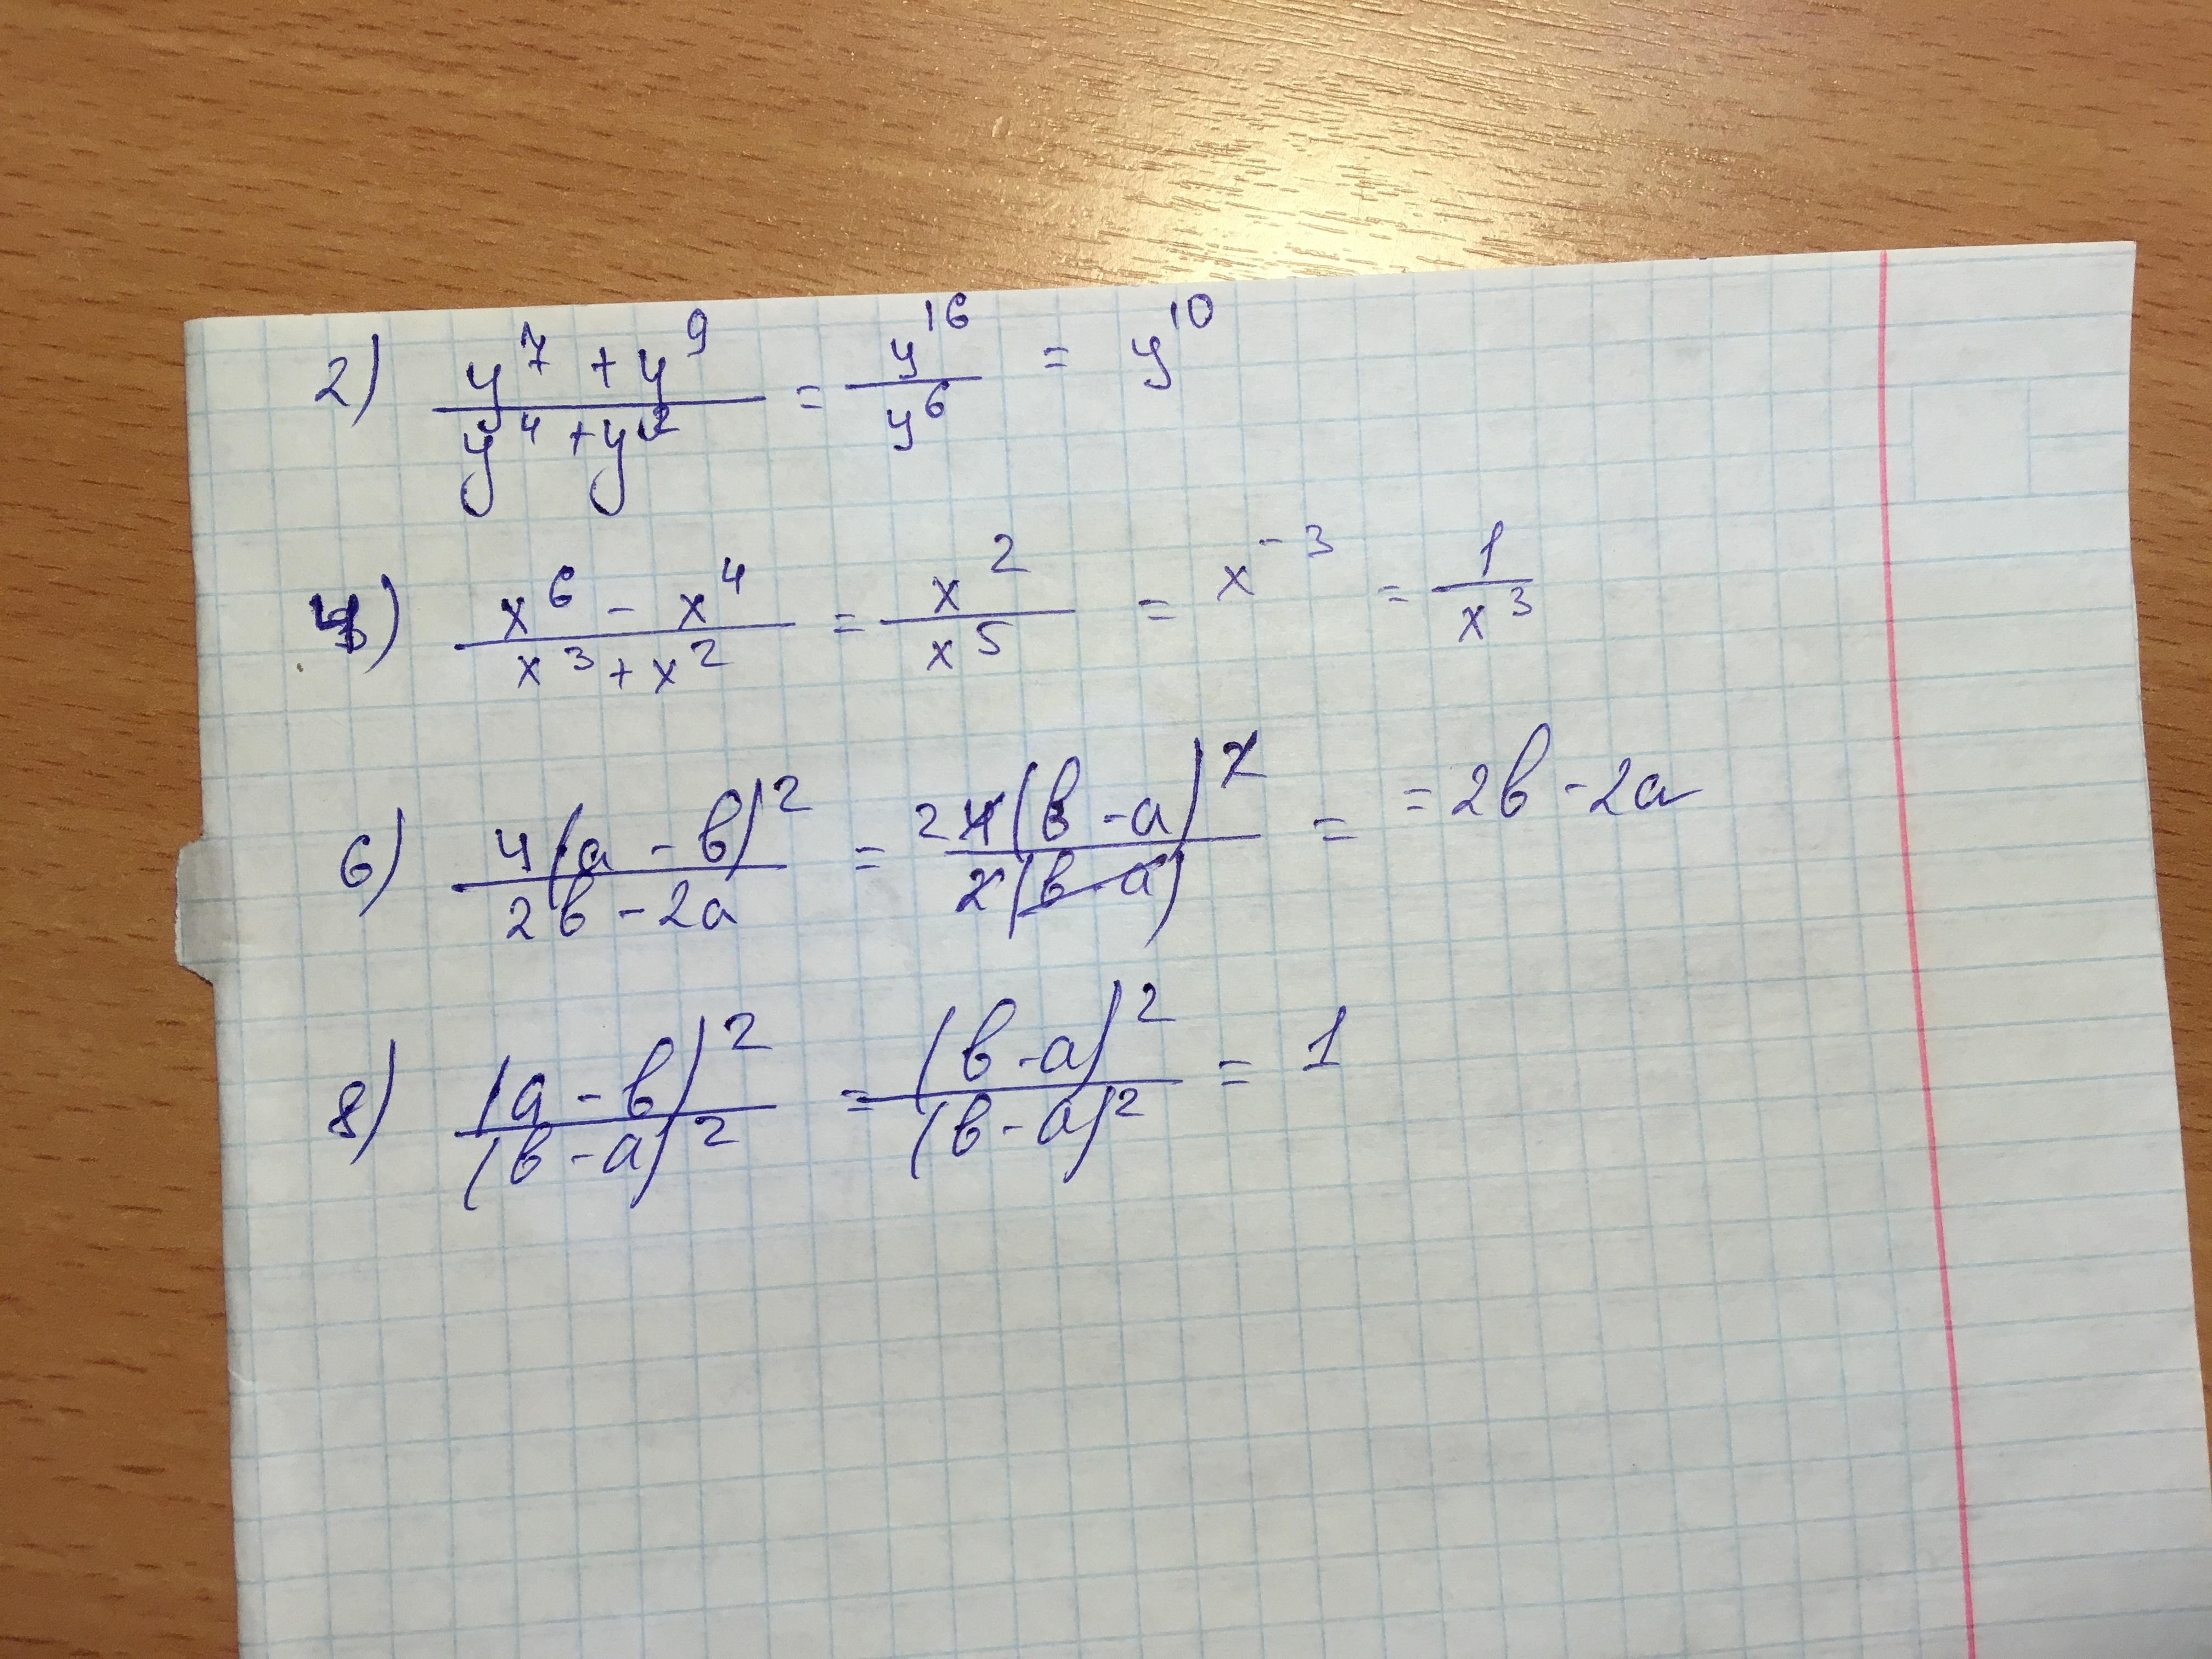 2) \frac{y^7 + y^9}{y^4 + y^2} = \frac{y^{16}}{y^6} = y^{10}
4) \frac{x^6 - x^4}{x^3 + x^2} = \frac{x^2}{x^5} = x^{-3} = \frac{1}{x^3}
6) \frac{4(а - в)^2}{2в - 2а} = \frac{2 4(в - а)^2}{2(в - а)} = = 2в - 2а
8) \frac{(а - в)^2}{(в - а)^2} = \frac{(в - а)^2}{(в - а)^2} = 1